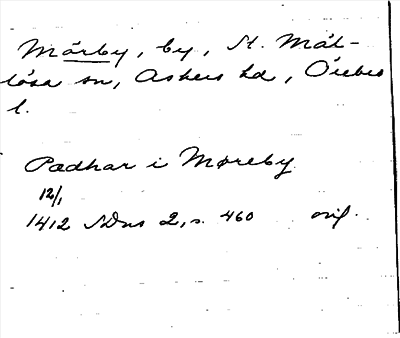 Mörby, by, St. Mäl-
lösa sn, Askers hd, Örebro
l.
Pædhar i Møreby
12/1
1412 SDns 2, s. 460 orig.